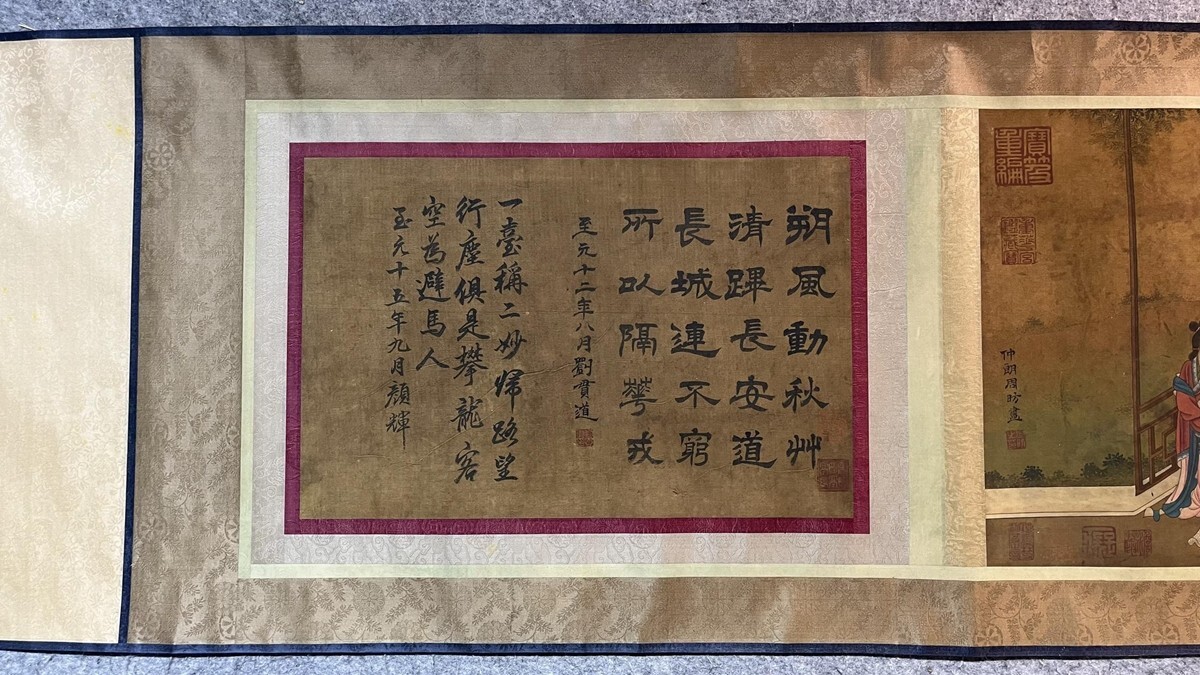 寶笈
重編
仲朗周昉畫
朔風動秋艸
清蹕長安道
長城連不窮
所以隔華戎
至元十二年八月劉貫道
一臺稱二妙歸路望
行塵俱是攀龍客
空為避馬人
至元十五年九月顏輝